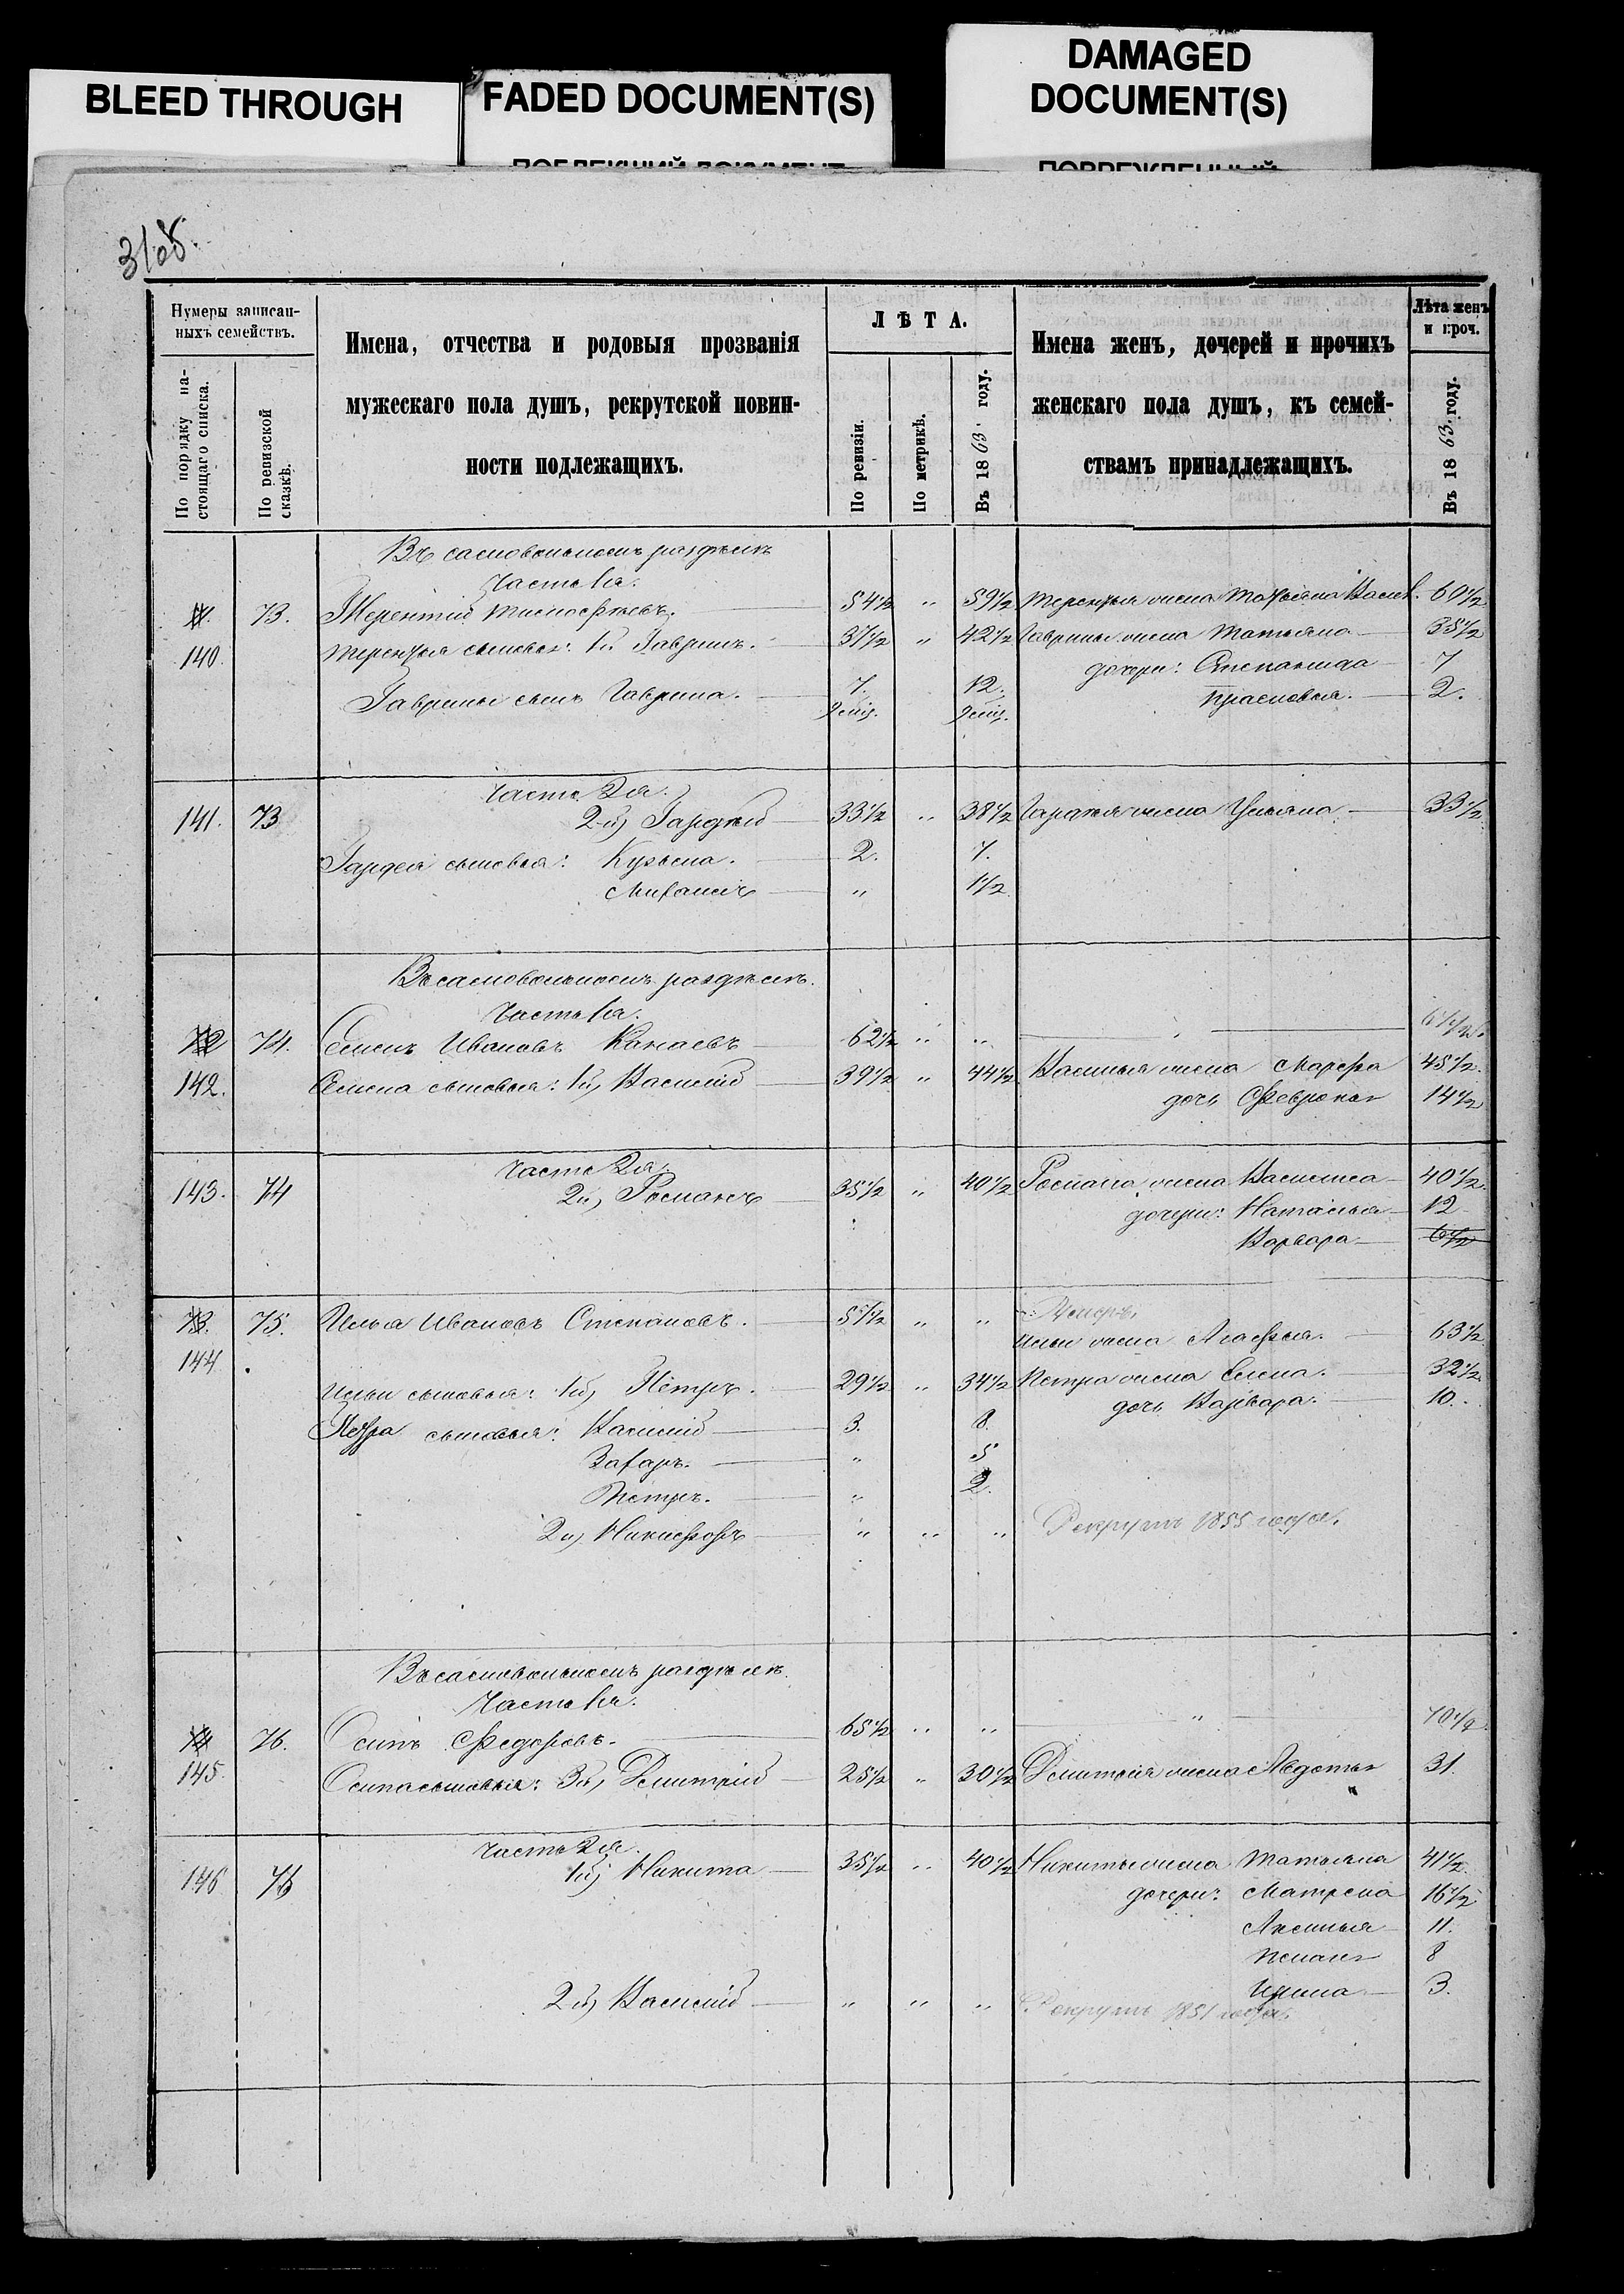 BLEED THROUGH
FADED DOCUMENT(S)
DAMAGED
DOCUMENT(S)
Нумеры записан-
ныхъ семействъ.
По порядку на-
стоящаго списка.
По ревизской
сказкѣ.
Имена, отчества и родовыя прозванія
мужескаго пола душъ, рекрутской повин-
ности подлежащихъ.
ЛѢТА.
По ревизіи.
По метрикѣ.
Въ 1863 году.
Имена женъ, дочерей и прочихъ
женскаго пола душъ, къ семей-
ствамъ принадлежащихъ.
Лѣта женъ
и проч.
Въ 1863 году.
Въ самовольномъ раздѣлѣ
Часть 1я.
73. Терентій Тимофѣевъ. 54½ „ 59½ Терентья жена 60½
140. Терентья сыновья: 1й Гаврилъ. 37½ „ 42½ Гаврилы жена Татьяна 38½
дочери: Степанида 7
Гаврилы сынъ Гаврила. 7. 12. Прасковья. 2.
Часть 2я.
141. 73 2й, Гордѣй 33½ „ 38½ Гордея жена Ульяна 33½
Гордея сыновья: Кузьма. 2. 7.
„ 1½
Въ самовольномъ раздѣлѣ.
Часть 1я.
72 74. Семенъ Ивановъ Канаевъ 62½ „ „
142. Семена сыновья: 1й, Василій 39½ „ 44½ Василья жена Марфа 45½
дочь Февронья 14½
Часть 2я.
143. 74 2й, Романъ 35½ „ 40½ Романа жена Василиса 40½
дочери: Наталья 12
Варвара 6½
73. 75. Илья Ивановъ Степановъ. 57½ „ „ Умеръ.
144. Ильи жена Агафья. 63½
Ильи сыновья: 1й, Петръ. 29½ „ 34½ Петра жена Елена. 32½
Петра сыновья: Василій 3. 8. дочь Варвара. 10.
Захаръ. „ 5
Петръ. „ 2.
2й, Никифоръ „ „ „ Рекрутъ 1855 года.
Въ самовольномъ раздѣлѣ.
Часть 1я.
74 76. Осипъ Федоровъ. 65½ „ „ „ 70½
145. Осипа сыновья: 3й, Дмитрій 25½ „ 30½ Дмитрія жена Авдотья 31.
Часть 2я.
146 76 1й, Никита 35½ „ 40½ Никиты жена Татьяна 41½
дочери: Матрена 16½
Аксинья 11.
8
2й, Василій „ „ „ Ирина 3.
Рекрутъ 1851 года.